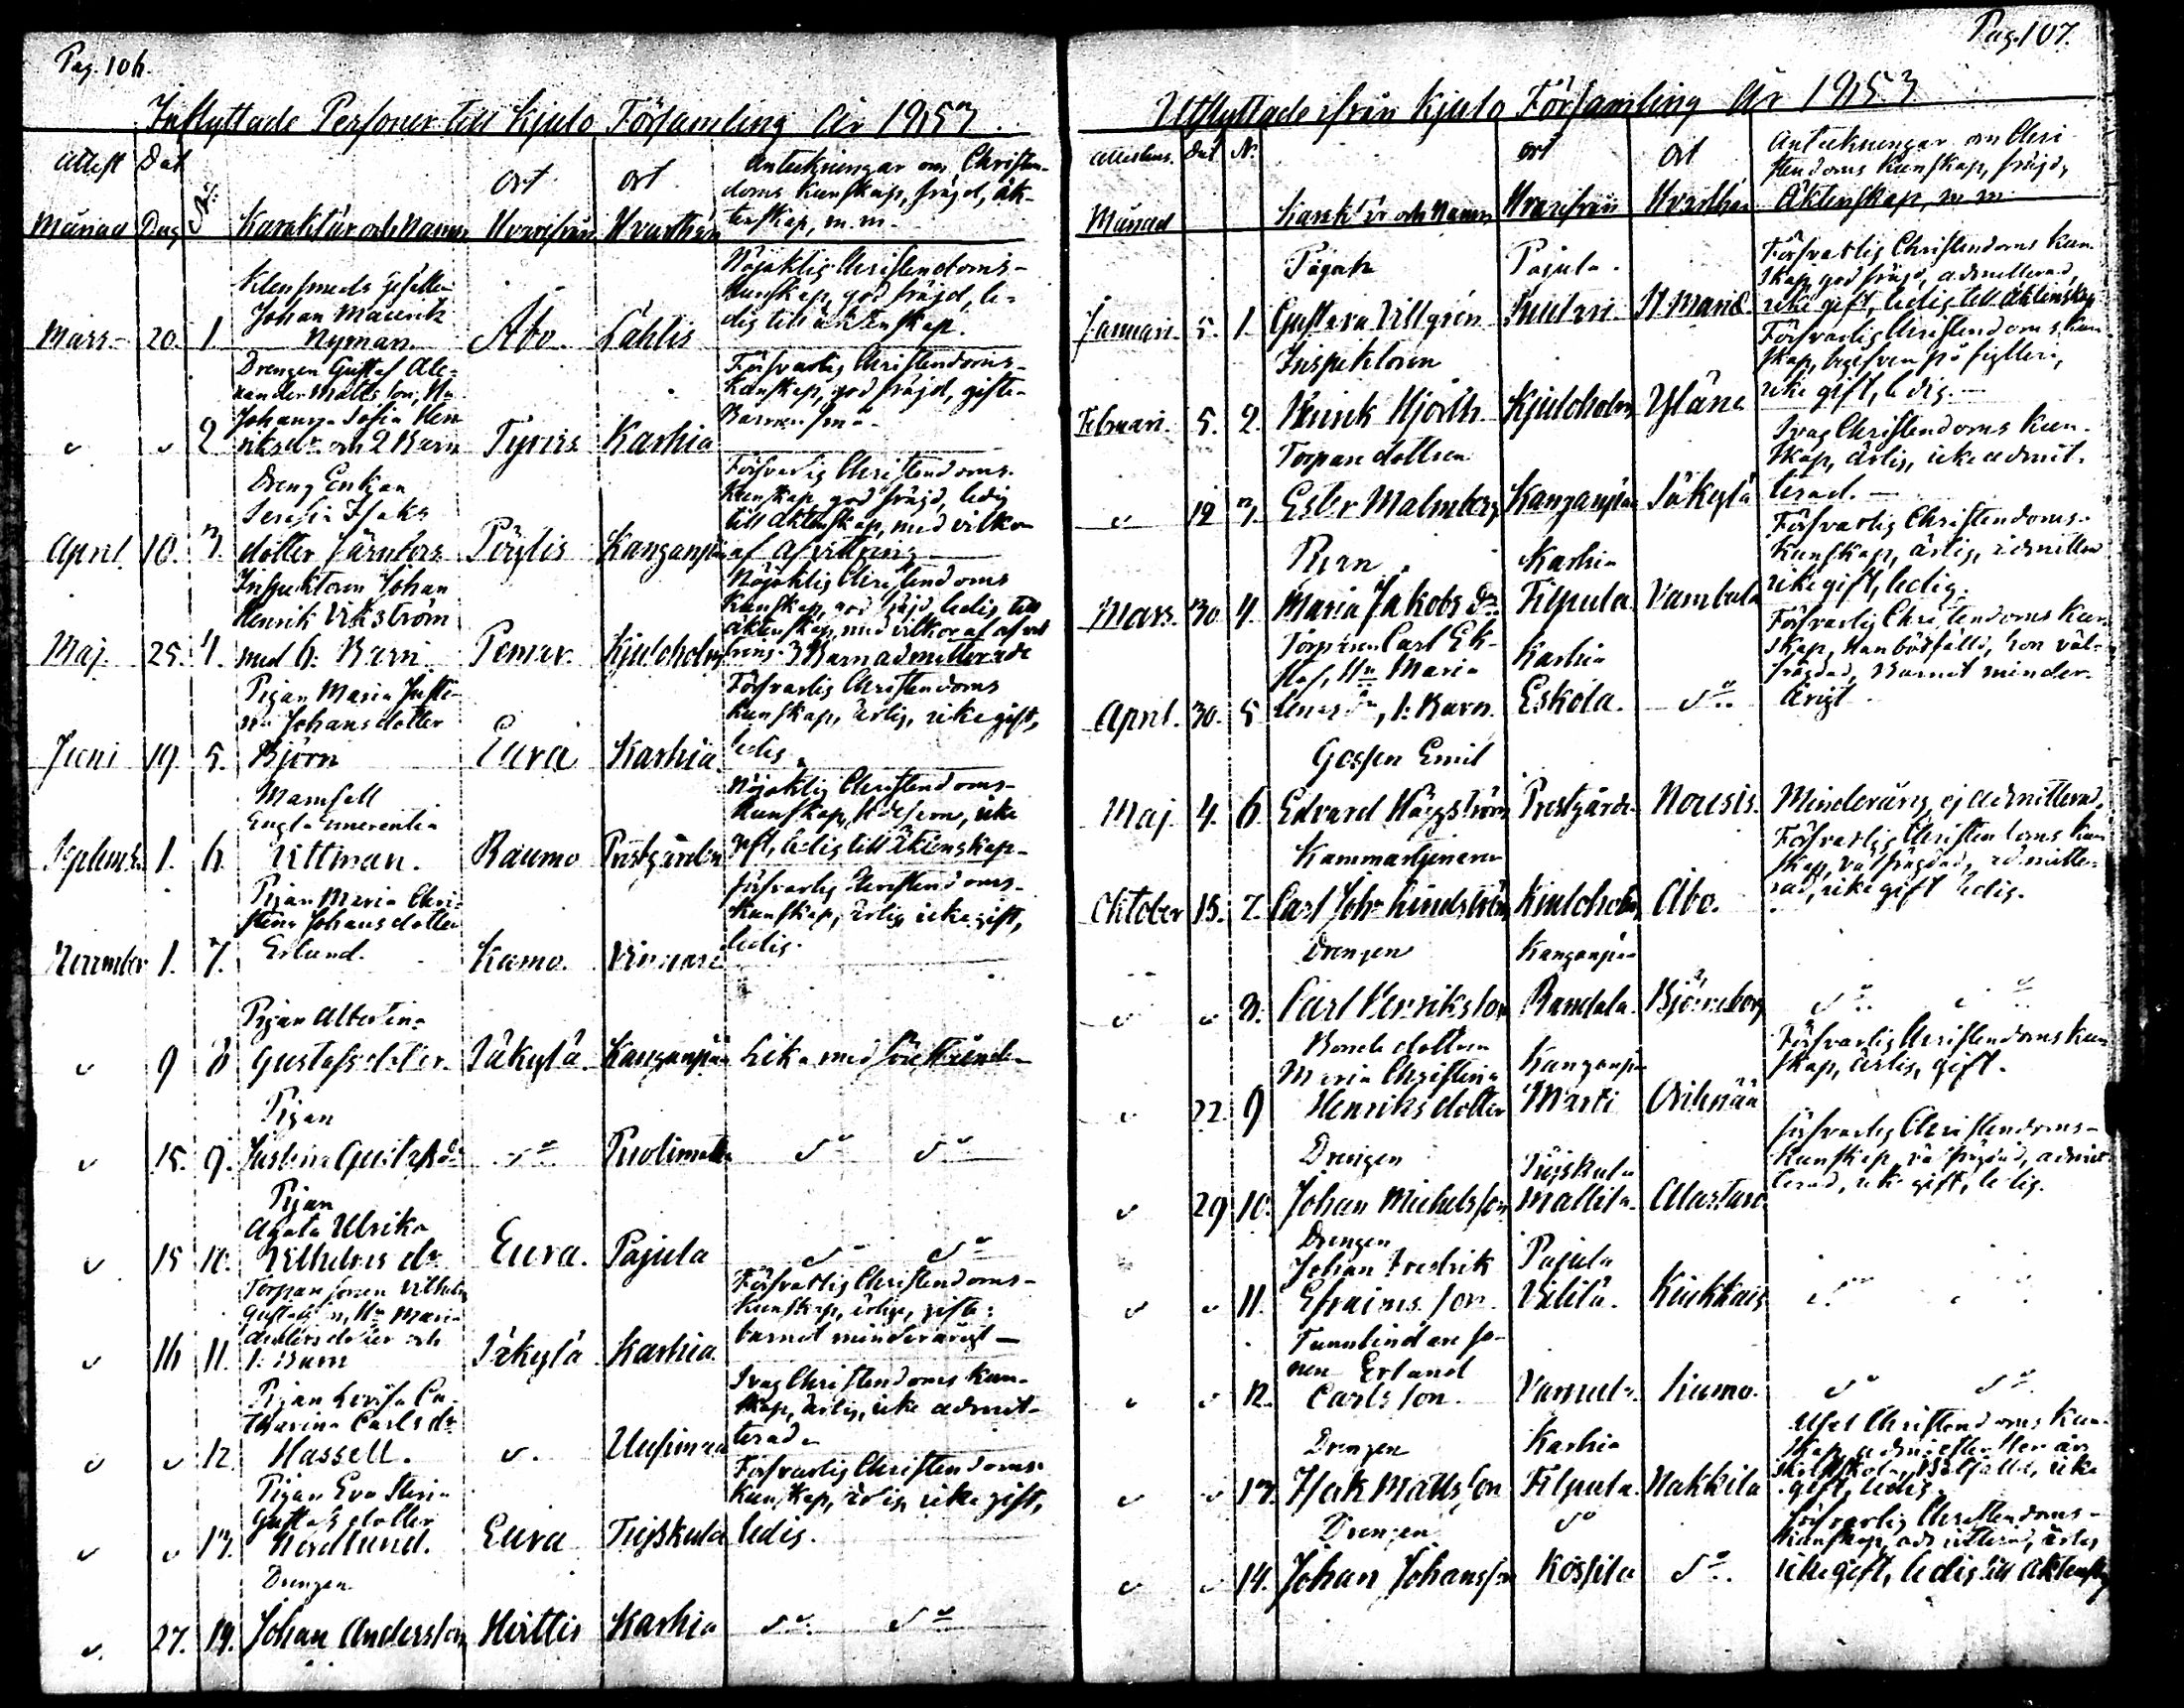 Pag. 106.
Inflyttade Personer till Kjulo Församling År 1853.
Attest Dat
Månad Dag No: Karaktär och Namn
ort Hvarifrån
ort Hvarthän
Anteckningar om Christen-
doms kunskap, frägd, äk-
tenskap, m.m.
Klensmeds gesällen
Johan Mauritz
Mars 20. 1 Nyman. Åbo. Lähtis
Nöjaktig Christendoms-
kunskap, god frägd, le-
dig till äktenskap.
Drengen Gustaf Ale-
xander Matts son, Hu
Johanna Sofia Hen
" " 2 riks dr och 2 Barn Tyrvis Karhia
Försvarlig Christendoms-
kunskap, god frägd, gifte
Barnen små
Dreng Enkan
Serafia Isaks
April 10. 3. dotter Järnfors Pöytis Kanganpää
Försvarlig Christendoms
kunskap god frägd, ledig
till äktenskap, med vilkor
af afvittring
Inspektoren Johan
Henrik Vikström
Maj. 25. 4. med 6. Barn Pemar. Kjuloholm
Nöjaktig Christendoms
kunskap, god frägd, ledig till
äktenskap, med vilkor af afvit
tring. 3 Barn admitterade
Pigan Maria Justi-
na Johansdotter
Juni 19. 5. Björn Eura Karhia.
Försvarlig Christendoms
kunskap, ärlig, icke gift,
ledig.
Mamsell
Engla Emerentia
Septemb. 1. 6. Uttman. Raumo Prestgården
Nöjaktig Christendoms-
kunskap, icke
gift, ledig till äktenskap
Pigan Maria Chri-
stina Johansdotter
November 1. 7. Erlund. Kumo. Vinnare
Försvarlig Christendoms-
kunskap, ärlig icke gift,
ledig.
Pigan Albertina
" 9 8 Gustafsdotter. Säkylä. Kanganpää Lika med föregående
Pigan
" 15. 9. Justina Gustafs dr do Puolimatka do do
Pigan
Agata Ulrika
" 15 10. Vilhelms dr Eura. Pajula do do
Torparsonen Vilhelm
Gustafsson, Hu Maria
Anders dotter och
" 16 11. 1. Barn Säkylä Karhia.
Försvarlig Christendoms-
kunskap, ärliga, gifta;
barnet minderårigt
Pigan Lovisa Ca-
tharina Carls dr
" " 12. Hassell. ". Uusimaa
Svag Christendoms kun-
skap, ärlig, icke admit-
terad
Pigan Eva Stina
Gustafsdotter
" " 13. Nordlund. Eura Tujskula
Försvarlig Christendoms-
kunskap, ärlig icke gift,
ledig.
Drengen
" 27. 14. Johan Andersson Hirttis Karhia do do
Pag. 107.
Utflyttade ifrån Kjulo Församling År 1853
Attestens. Dat N.
Månad Karaktär och Namn
ort Hvarifrån
ort Hvarthän
Anteckningar om Chri
stendoms kunskap, frägd,
Äktenskap, m m
Pigan Pajula.
Januari. 5. 1. Gustava Villgrén Knuutari St Marie
Försvarlig Christendoms kun-
skap, god frägd, admitterad,
icke gift, ledig till äktenskap
Inspektoren
Februari. 5. 2. Henrik Hjorth. Kjuloholm Yläne
Försvarlig Christendoms kun
skap, begifven på fylleri,
icke gift, ledig.
Torpare dottren
" 12 3. Ester Malmberg Kanganpää Säkylä
Svag Christendoms kun-
skap, ärlig, icke admit-
terad.
Pigan. Karhia
Mars. 30 4. Maria Jakobs dr Filpula Vambula
Försvarlig Christendoms-
kunskap, ärlig, admitterad
icke gift, ledig.
Torparen Carl Ek-
stof, Hu Maria Karhia
April. 30. 5 dr, 1. Barn. Eskola. do
Försvarlig Christendoms kun
skap, Han bötfälld, hon väl-
frägdad, Barnet minder-
årigt
Gossen Emil
Maj. 4. 6. Edvard Häggström Prestgården Nousis. Minderårig, ej admitterad.
Kammartjenaren
Oktober 15. 7. Carl Joh. Lindström Kjuloholm Åbo.
Försvarlig Christendoms kun
skap, välfrägdad, admitte-
rad, icke gift ledig.
Drengen Kanganpää
" " 8. Carl Henriksson Randala Björneborg do do
Bonde dottren
Maria Christina Kanganpää
" 22. 9 Henriksdotter Martti Orihpää
Försvarlig Christendoms kun
skap, ärlig, gift.
Drengen Tujskula
" 29 10. Johan Michelsson Mattila Alastaro
Försvarlig Christendoms-
kunskap, välfrägdad, admit
terad, icke gift, ledig.
Drengen
Johan Fredrik Pajula
" " 11. Efraims son. Välilä. Kiukkais do
Tunnbindare so-
nen Erland
" " 12. Carls son. Vamula Kumo. do do
Drengen Karhia
" " 13. Isak Matts son Filpula Nakkila
Usel Christendoms kun-
skap,
bötfälld, icke
gift, ledig.
Drengen do
" " 14. Johan Johansson Kössilä do.
Försvarlig Christendoms-
kunskap, admitterad, ärlig
icke gift, ledig till äktenskap